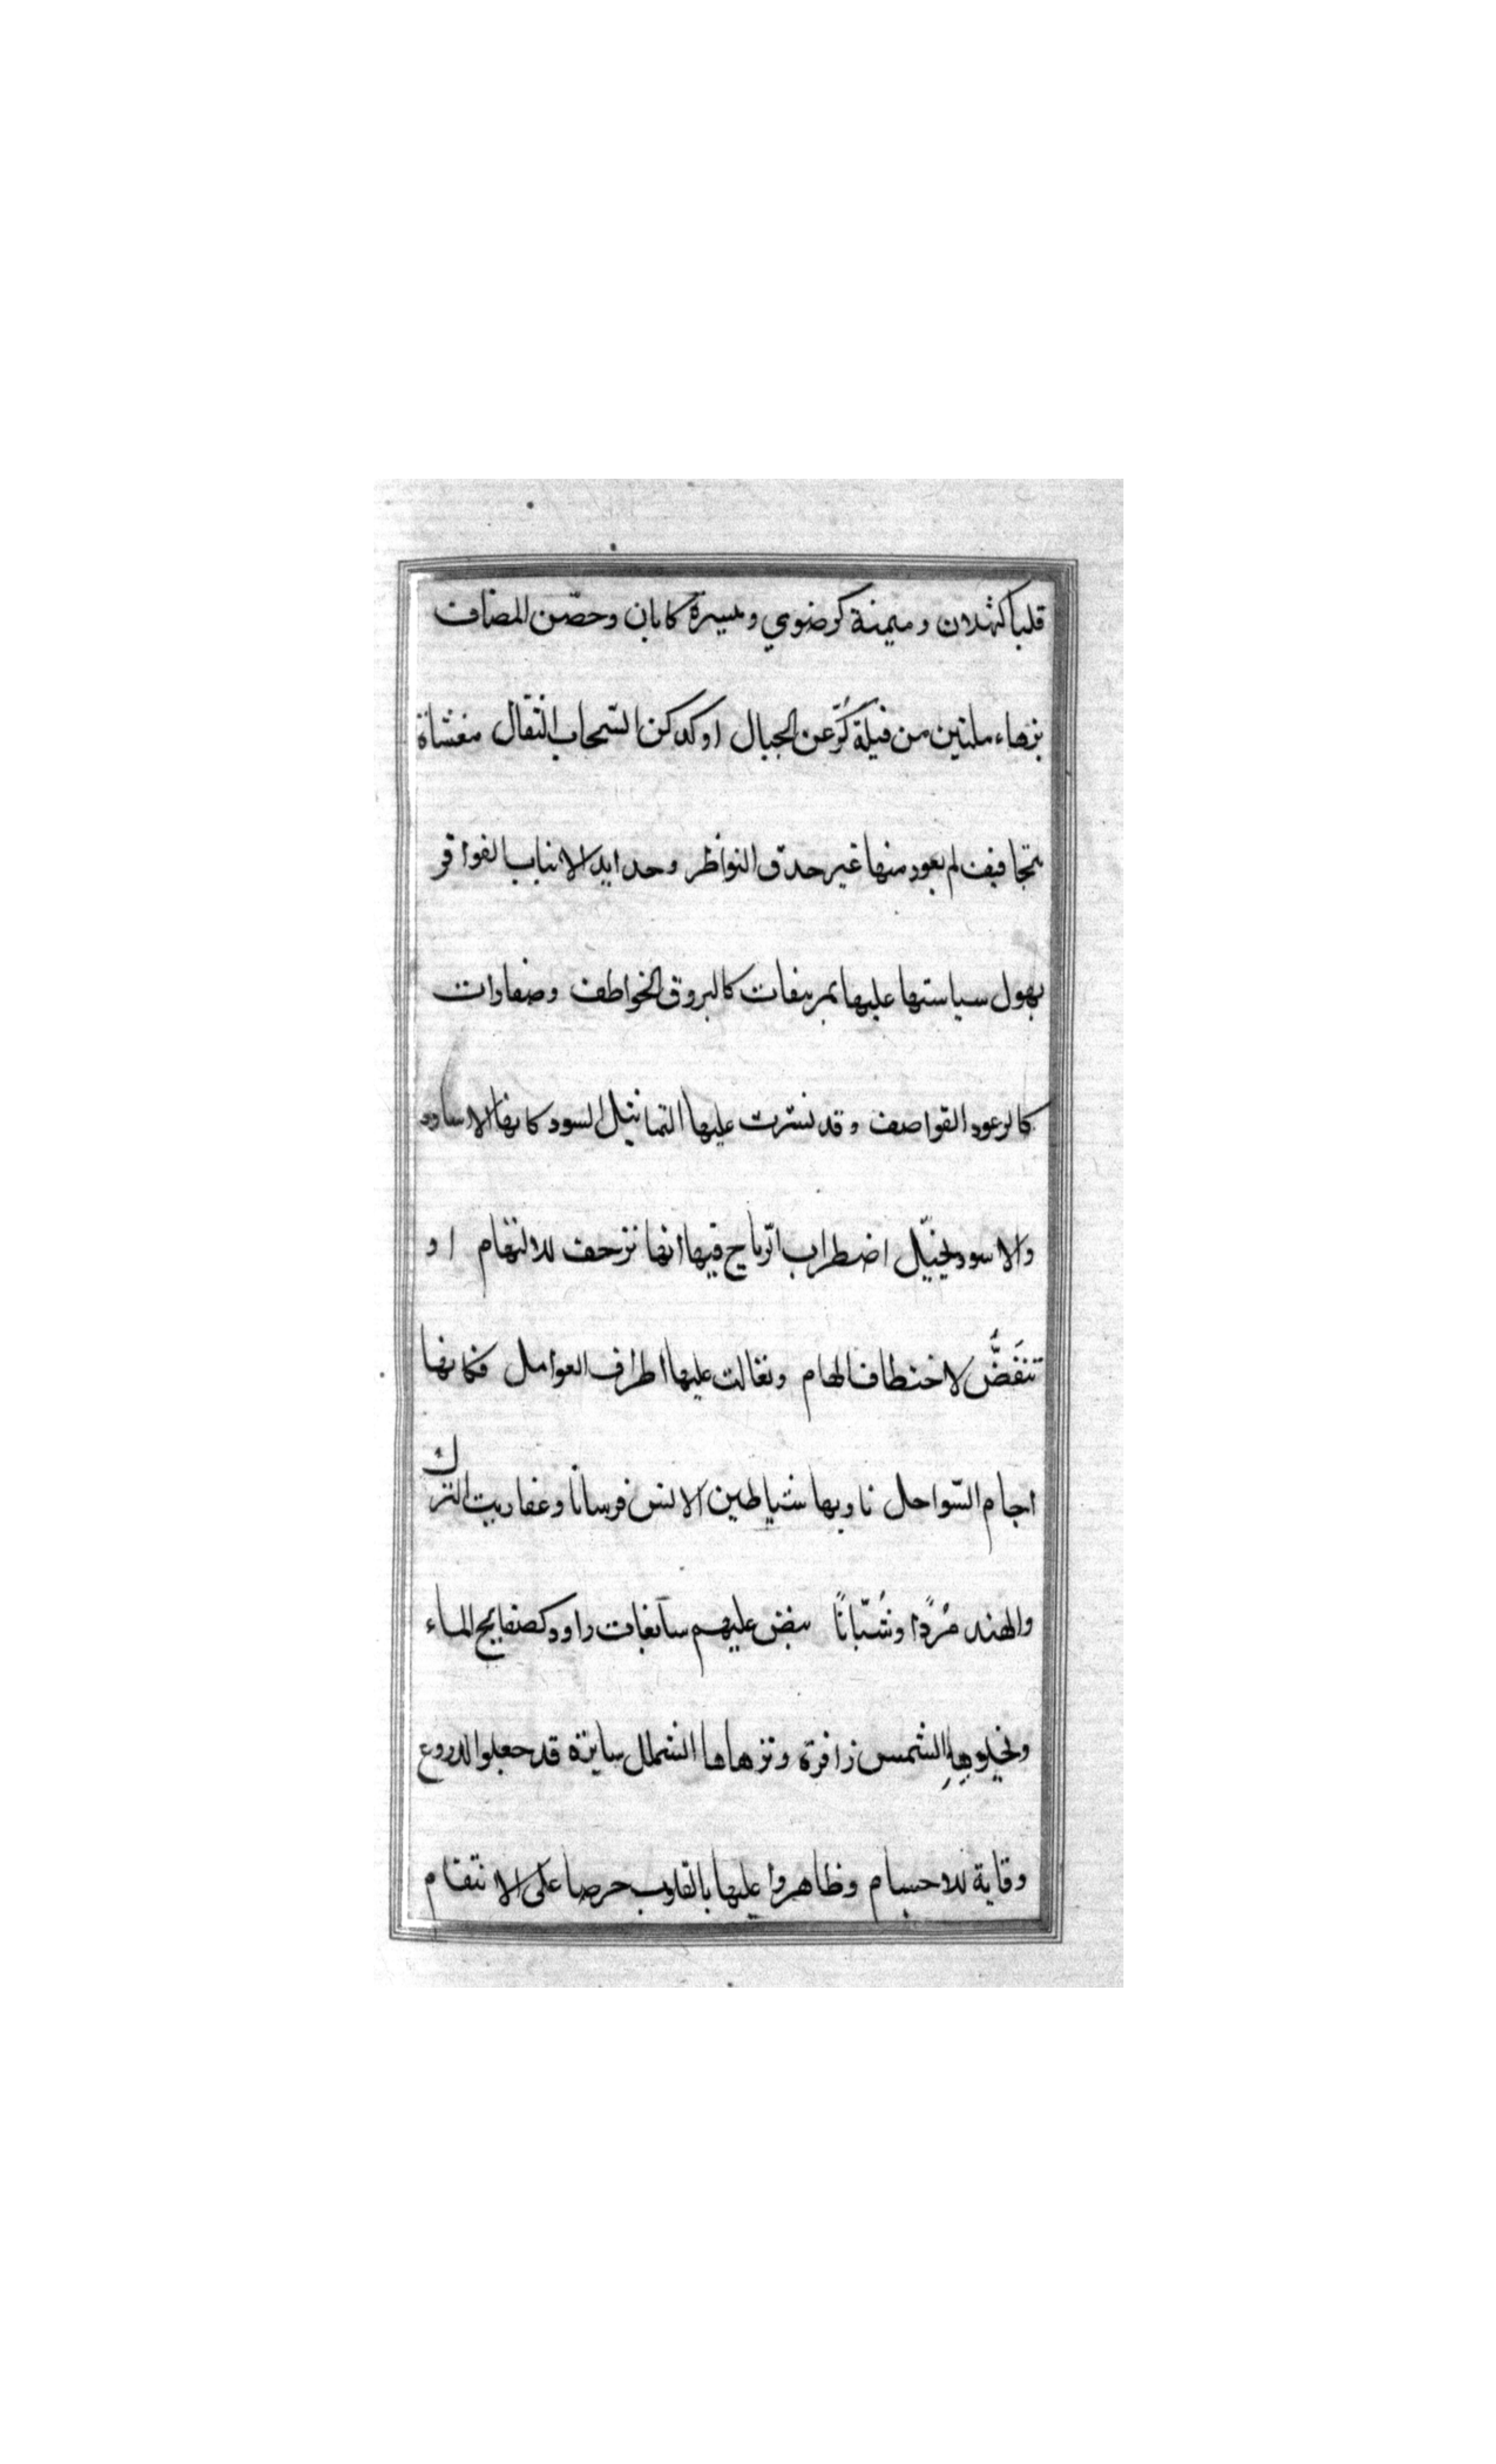 قلبا كثهلان وميمنة كرضوي وميسرة كابان وحصّن المصاف
بزهاء مائتين من فيلة كرُعن الجبال او كدكن السّحاب الثقال مغشاة
بتجافيف لم يعود منها غير حدق النواظر وحدايد الانياب الفواقر
يهول سياستها عليها بمرهفات كالبروق الخواطف وصفارات
كالرعود القواصف وقد نشرت عليها التماثيل السود كانها الاساود
والاسود يخيّل اضطراب الرّياح فيها انها تزحف للالتهام او
تَنقَضُّ لاختطاف الهام وتغالت عليها اطراف العوامل فكانها
اجام السّواحل ناوبها شياطين الانس فرسانا وعفاريت الترك
والهند مُردًا وشُبّانًا يبض عليهم سابغات داود كصفايح الماء
وتجلوها الشمس زافرة وتزهاها الشمال سايرة قد جعلوا الدروع
وقاية للاجسام وظاهروا عليها بالقلوب حرصا على الانتقام